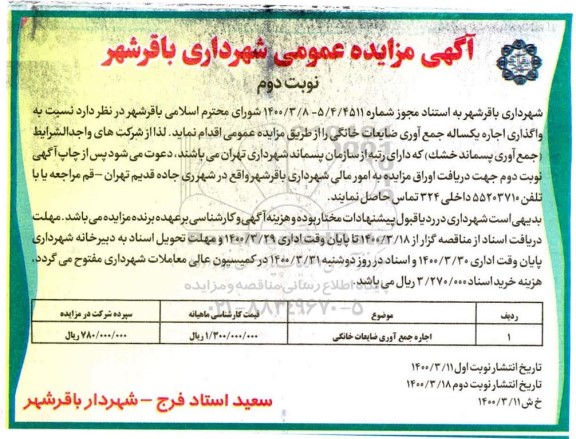 آگهی مزایده عمومی شهرداری باقرشهر
نوبت دوم
شهرداری باقرشهر به استناد مجوز شماره ۵/۴/۴۵۱۱- ۱۴۰۰/۳/۸ شورای محترم اسلامی باقرشهر در نظر دارد نسبت به
واگذاری اجاره یکساله جمع آوری ضایعات خانگی را از طریق مزایده عمومی اقدام نماید. لذا از شرکت های واجدالشرایط
(جمع آوری پسماند خشک) که دارای رتبه از سازمان پسماند شهرداری تهران می باشند، دعوت می شود پس از چاپ آگهی
نوبت دوم جهت دریافت اوراق مزایده به امور مالی شهرداری باقرشهر واقع در شهرری جاده قدیم تهران - قم مراجعه یا با
تلفن ۵۵۲۰۳۷۱۰ داخلی ۳۲۴ تماس حاصل نمایند.
بدیهی است شهرداری در رد یا قبول پیشنهادات مختار بوده و هزینه آگهی و کارشناسی بر عهده برنده مزایده می باشد. مهلت
دریافت اسناد از مناقصه گزار از ۱۴۰۰/۳/۱۸ تا پایان وقت اداری ۱۴۰۰/۳/۲۹ و مهلت تحویل اسناد به دبیرخانه شهرداری
پایان وقت اداری ۱۴۰۰/۳/۳۰ و اسناد در روز دوشنبه ۱۴۰۰/۳/۳۱ در کمیسیون عالی معاملات شهرداری مفتوح می گردد،
هزینه خرید اسناد ۳/۲۷۰/۰۰۰ ریال می باشد.
پایگاه اطلاع رسانی مناقصه و مزایده
۰۲۱-۸۸۳۴۹۶۷۰-۵
ردیف موضوع قیمت کارشناسی ماهیانه سپرده شرکت در مزایده
۱ اجاره جمع آوری ضایعات خانگی ۱/۳۰۰/۰۰۰/۰۰۰ ریال ۷۸۰/۰۰۰/۰۰۰ ریال
تاریخ انتشار نوبت اول ۱۴۰۰/۳/۱۱
تاریخ انتشار نوبت دوم ۱۴۰۰/۳/۱۸
خ ش ۱۴۰۰/۳/۱۱
سعید استاد فرج – شهردار باقرشهر